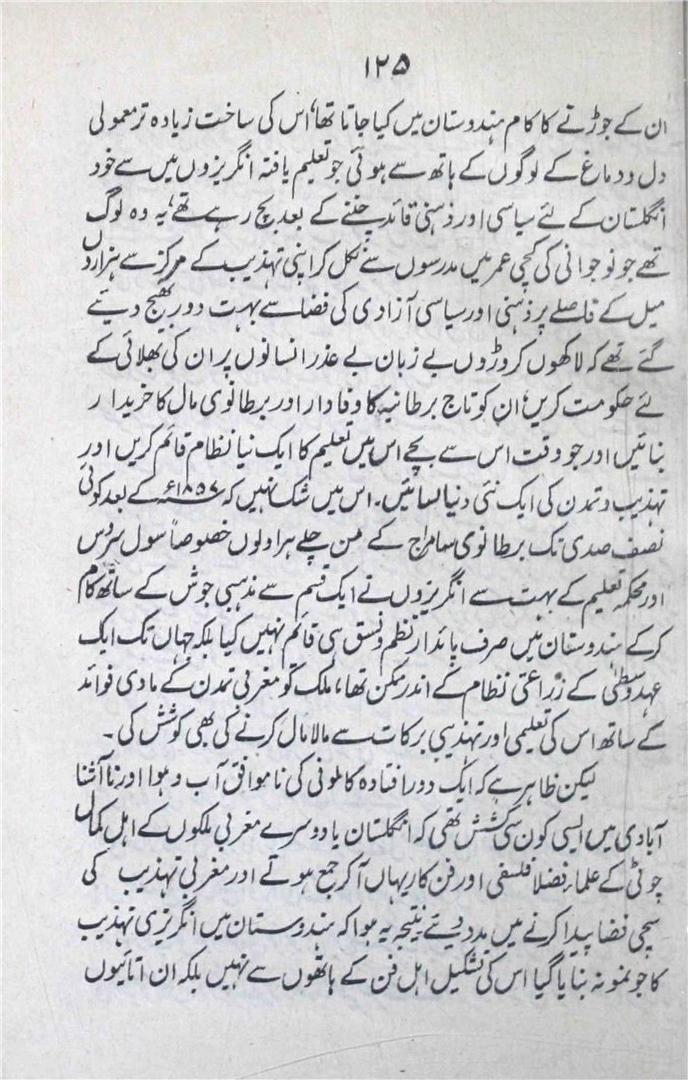 ۱۲۵
ان کے جوڑنے کا کام ہندوستان میں کیا جاتا تھا، اس کی ساخت زیادہ تر معمولی
دل ودماغ کے لوگوں کے ہاتھ سے ہوئی جو تعلیم یافتہ انگریزوں میں سے خود
انگلستان کے لئے سیاسی اور ذہنی قائد چننے کے بعد بچ رہے تھے، یہ وہ لوگ
تھے جو نوجوانی کی کچی عمر میں مدرسوں سے نکل کر اپنی تہذیب کے مرکز سے ہزاروں
میل کے فاصلے پر ذہنی اور سیاسی آزادی کی فضا سے بہت دور بھیج دیئے
گئے تھے کہ لاکھوں کروڑوں بے زبان بے عذر انسانوں پر ان کی بھلائی کے
لئے حکومت کریں، ان کو تاج برطانیہ کا وفادار اور برطانوی مال کا خریدار
بنائیں اور جو وقت اس سے بچے اس میں تعلیم کا ایک نیا نظام قائم کریں اور
تہذیب وتمدن کی ایک نئی دنیا بسائیں۔ اس میں شک نہیں کہ ۱۸۵۷ء کے بعد کوئی
نصف صدی تک برطانوی سامراج کے من چلے ہراولوں خصوصاً سول سروس
اور محکمہ تعلیم کے بہت سے انگریزوں نے ایک قسم سے مذہبی جوش کے ساتھ کام
کرکے ہندوستان میں صرف پائدار نظم ونسق ہی قائم نہیں کیا بلکہ جہاں تک ایک
عہد وسطیٰ کے زراعتی نظام کے اندر ممکن تھا، ملک کو مغربی تمدن کے مادی فوائد
کے ساتھ اس کی تعلیمی اور تہذیبی برکات سے مالا مال کرنے کی بھی کوشش کی۔
لیکن ظاہر ہے کہ ایک دور افتادہ کالونی کی ناموافق آب وہوا اور نا آشنا
آبادی میں ایسی کون سی کشش تھی کہ انگلستان یا دوسرے مغربی ملکوں کے اہل کمال
چوٹی کے علما، فضلا فلسفی اور فن کار یہاں آکر جمع ہوتے اور مغربی تہذیب کی
سچی فضا پیدا کرنے میں مدد دیتے نتیجہ یہ ہوا کہ ہندوستان میں انگریزی تہذیب
کا جو نمونہ بنایا گیا اس کی تشکیل اہل فن کے ہاتھوں سے نہیں بلکہ ان اتائیوں